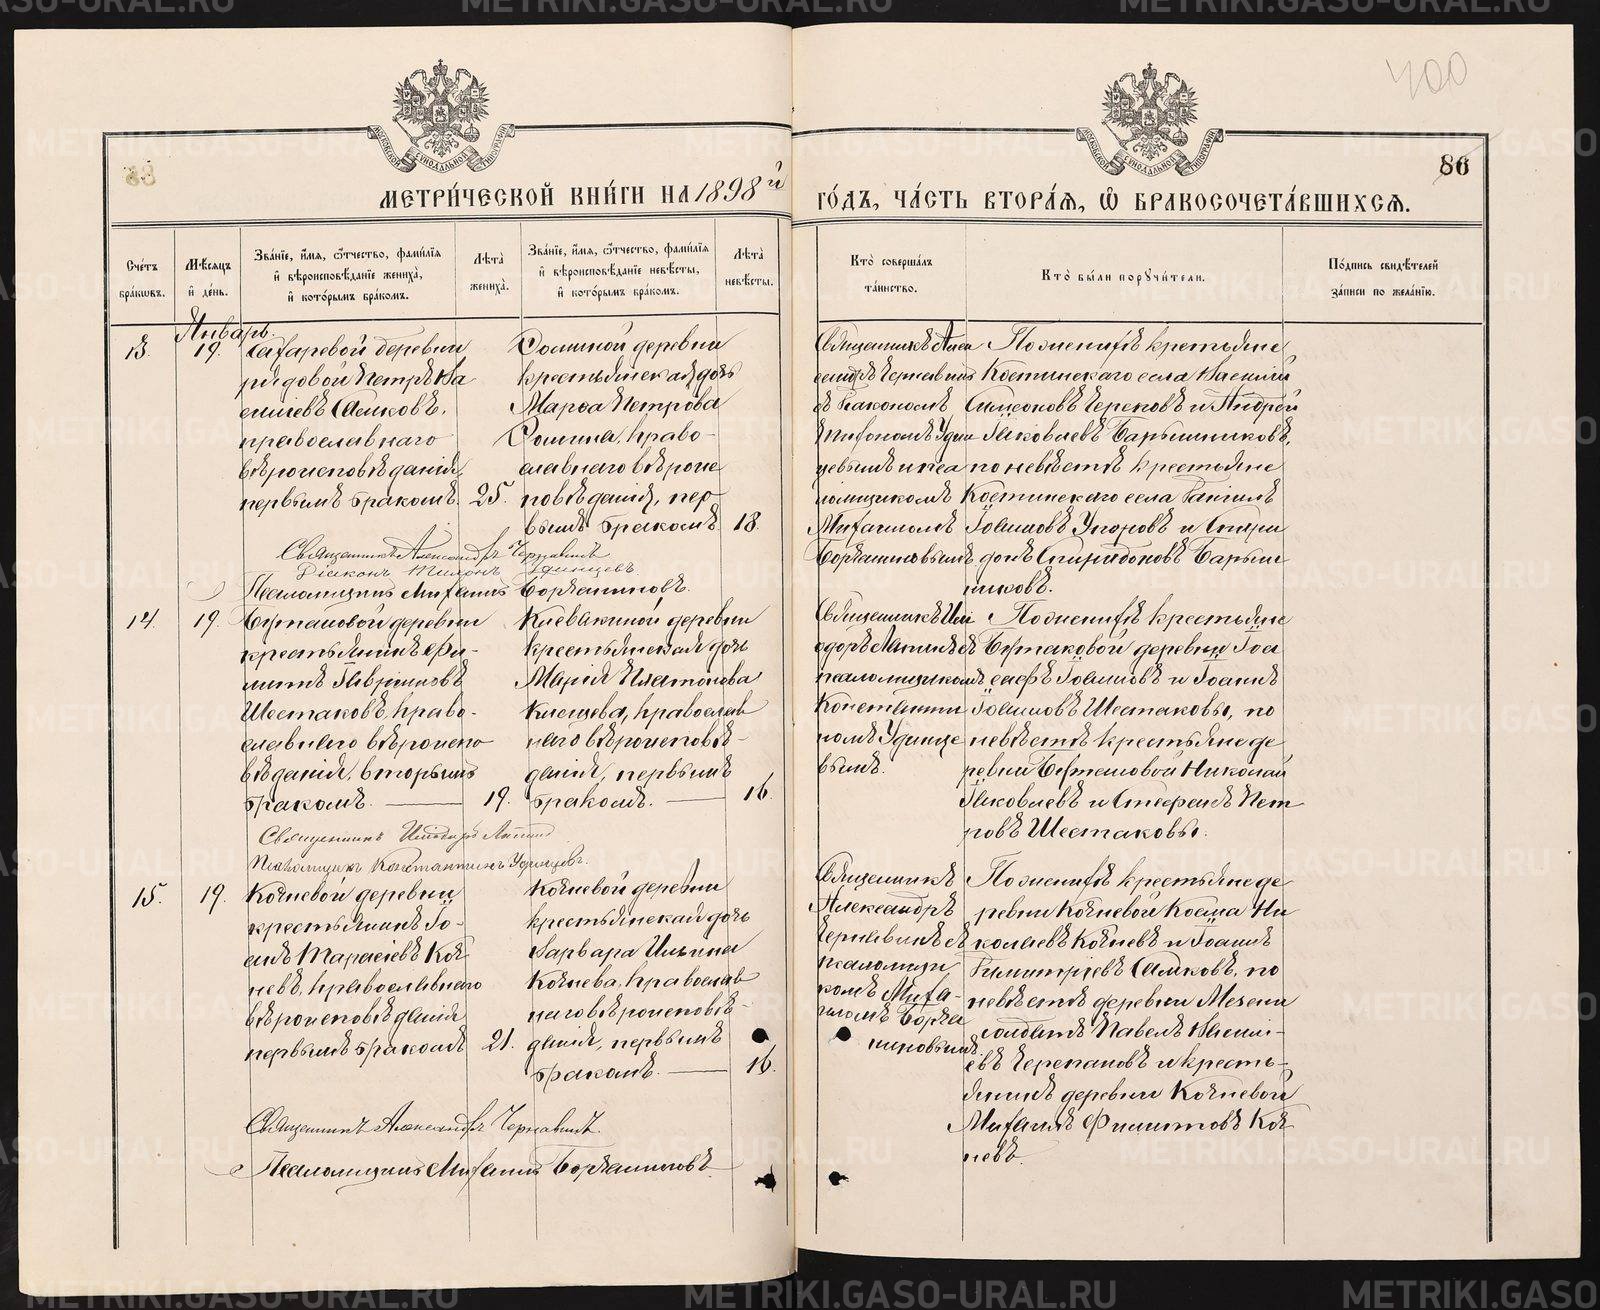 400
86
МЕТРИ́ЧЕСКОЙ КНИ́ГИ НА 1898й
ГО́ДЪ, ЧА́СТЬ ВТОРА́Я, Ѡ БРАКОСОЧЕТА́ВШИХСЯ.
Сче́тъ бра́кѡвъ.
Мѣ́сяцъ и҆ де́нь.
Зва́нїе, и҆́мя, ѻ҆́тчество, фами́лїя
и҆ вѣроисповѣ́данїе жениха̀,
и҆ кото́рымъ бра́комъ.
Лѣта̀ жениха̀.
Зва́нїе, и҆́мя, ѻ҆́тчество, фами́лїя
и҆ вѣроисповѣ́данїе невѣ́сты,
и҆ кото́рымъ бра́комъ.
Лѣта̀ невѣ́сты.
Кто̀ соверша́лъ
та́инство.
Кто̀ бы́ли порꙋчи́тели.
По́дпись свидѣ́телей
за́писи по жела́нїю.
Январь.
13.
19.
деревни
рядовой Петръ Ва
сильевъ Самковъ,
православнаго
вѣроисповѣданія,
первымъ бракомъ.
25.
деревни
крестьянская дочь
Марѳа Петрова
право-
славнаго вѣроис
повѣданія, пер
вымъ бракомъ.
18.
Священникъ Алек
сандръ Чернавинъ
съ діакономъ
Тихономъ Удин
цевымъ и пса
ломщикомъ
Михаиломъ
По женихѣ крестьяне
Костинскаго села Василій
Симеоновъ и Андрей
Яковлевъ Барышниковъ,
по невѣстѣ крестьяне
Костинскаго села Даніилъ
Іоанновъ и Спири
донъ Спиридоновъ Барыш
никовъ.
Священникъ Александръ Чернавинъ
Діаконъ Тихонъ Удинцевъ.
Псаломщикъ Михаилъ
14.
19.
деревни
крестьянинъ Фи-
липпъ
Шестаковъ, право-
славнаго вѣроиспо
вѣданія, вторымъ
бракомъ.
19.
деревни
крестьянская дочь
Марія Платонова
православ
наго вѣроисповѣ-
данія, первымъ
бракомъ.
16.
Священникъ Или
одоръ съ
псаломщикомъ
Константи
номъ Удинце
вымъ.
По женихѣ крестьяне
деревни Іоа
Іоанновъ и Іоаннъ
Іоанновъ Шестаковы, по
невѣстѣ крестьяне де
ревни Николай
Яковлевъ и Стефанъ Пет
ровъ Шестаковы.
Священникъ Иліодоръ
Псаломщикъ Константинъ Удинцевъ.
15.
19.
Кочневой деревни
крестьянинъ Іо-
аннъ Тарасіевъ Коч
невъ, православнаго
вѣроисповѣданія
первымъ бракомъ
21.
Кочневой деревни
крестьянская дочь
Варвара Ильина
Кочнева, православ
наго вѣроисповѣ-
данія, первымъ
бракомъ.
16.
Священникъ
Александръ
Чернавинъ съ
псаломщи
комъ Миха-
иломъ
По женихѣ крестьяне де
ревни Кочневой Косма Ни
колаевъ Кочневъ и Іоаннъ
Димитріевъ Самковъ, по
невѣстѣ деревни
солдатъ Павелъ Василі-
евъ Черепановъ и кресть-
янинъ деревни Кочневой
Михаилъ Филипповъ Коч
невъ.
Священникъ Александръ Чернавинъ.
Псаломщикъ Михаилъ